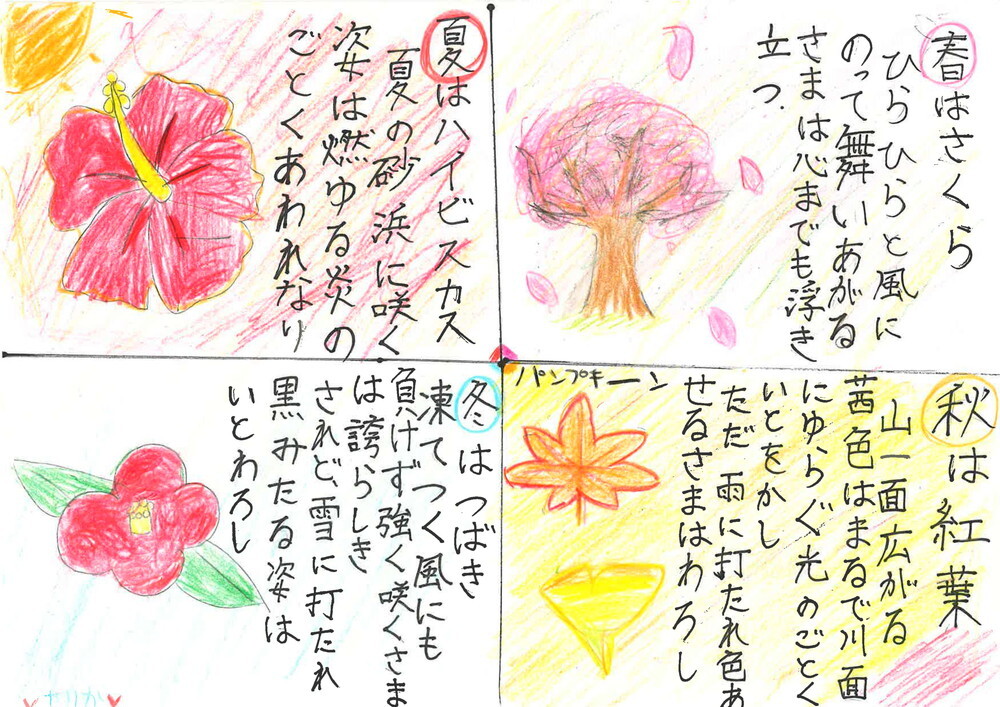 春はさくら
ひらひらと風に
のって舞いあがる
さまは心までも浮き
立つ.
夏はハイビスカス
夏の砂浜に咲く
姿は燃ゆる炎の
ごとくあわれなり
秋は紅葉
山一面広がる
茜色はまるで川面
にゆらぐ光のごとく
いとをかし
ただ雨に打たれ色あ
せるさまはわろし
パンプキーン
冬はつばき
凍てつく風にも
負けず強く咲くさま
は誇らしき
されど、雪に打たれ
黒みたる姿は
いとわろし